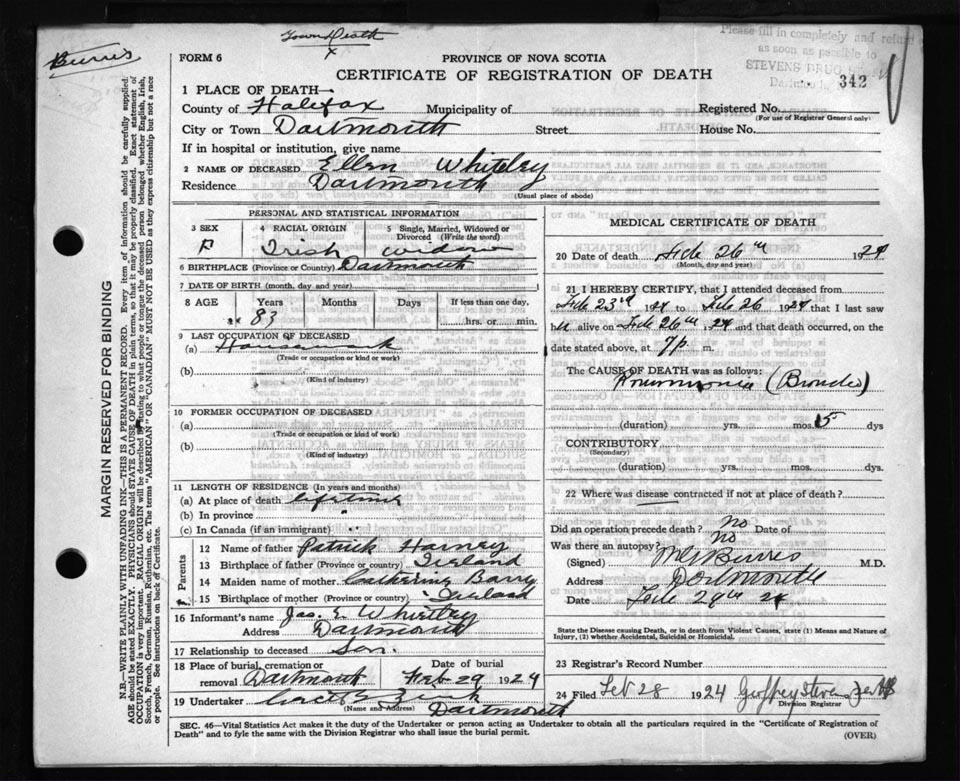 Town Death
x
Burris
FORM 6
PROVINCE OF NOVA SCOTIA
CERTIFICATE OF REGISTRATION OF DEATH
Please fill in completely and
as soon as possible to
STEVENS DRUG
342
1 PLACE OF DEATH—
County of Halifax Municipality of Registered No.
(For use of Registrar General only)
City or Town Dartmouth Street House No.
If in hospital or institution, give name
2 NAME OF DECEASED Ellen Whiteley
Residence Dartmouth
(Usual place of abode)
PERSONAL AND STATISTICAL INFORMATION
3 SEX 4 RACIAL ORIGIN 5 Single, Married, Widowed or
Divorced (Write the word)
F Irish widow
6 BIRTHPLACE (Province or Country) Dartmouth
7 DATE OF BIRTH (month, day and year)
8 AGE Years Months Days If less than one day,
83 hrs. or min.
9 LAST OCCUPATION OF DECEASED
(a) Housework
(Trade or occupation or kind or work)
(b)
(Kind of industry)
10 FORMER OCCUPATION OF DECEASED
(a)
(Trade or occupation or kind of work)
(b)
(Kind of industry)
11 LENGTH OF RESIDENCE (In years and months)
(a) At place of death lifetime
(b) In province "
(c) In Canada (if an immigrant) "
Parents
12 Name of father Patrick Harney
13 Birthplace of father (Province or country) Ireland
14 Maiden name of mother Catherine Barry
15 Birthplace of mother (Province or country) Ireland
16 Informant's name Jas. E Whiteley
Address Dartmouth
17 Relationship to deceased Son.
18 Place of burial, cremation or Date of burial
removal Dartmouth Feb 29 1924
19 Undertaker Zink
(Name and Address) Dartmouth
MEDICAL CERTIFICATE OF DEATH
20 Date of death Feb 26th 1924
(Month, day and year)
21 I HEREBY CERTIFY, that I attended deceased from
Feb 23rd 1924 to Feb 26 1924 that I last saw
her alive on Feb 26th, 24 and that death occurred, on the
date stated above, at 7p. m.
The CAUSE OF DEATH was as follows:
Pneumonia (Broncho)
(duration) yrs. mos. 5 dys
CONTRIBUTORY
(Secondary)
(duration) yrs. mos. dys.
22 Where was disease contracted if not at place of death?
Did an operation precede death? No Date of
Was there an autopsy? No
(Signed) Burris M.D.
Address Dartmouth
Date Feb 28th 24
State the Disease causing Death, or in death from Violent Causes, state (1) Means and Nature of
Injury, (2) whether Accidental, Suicidal or Homicidal.
23 Registrar's Record Number
24 Filed Feb 28 1924 Geoffrey Stevens
Division Registrar
SEC. 46—Vital Statistics Act makes it the duty of the Undertaker or person acting as Undertaker to obtain all the particulars required in the "Certificate of Registration of
Death" and to fyle the same with the Division Registrar who shall issue the burial permit.
(OVER)
MARGIN RESERVED FOR BINDING
N.B.—WRITE PLAINLY WITH UNFADING INK—THIS IS A PERMANENT RECORD. Every item of information should be carefully supplied.
AGE should be stated EXACTLY. PHYSICIANS should STATE CAUSE OF DEATH in plain terms, so that it may be properly classified. Exact statement of
OCCUPATION is very important. RACIAL ORIGIN will be described by stating to what people or tongue the deceased person belonged whether English, Irish,
Scotch, French, German, Russian, Ruthenian, etc. The terms "AMERICAN" OR "CANADIAN" MUST NOT BE USED as they express citizenship but not a race
or people. See instructions on back of Certificate.